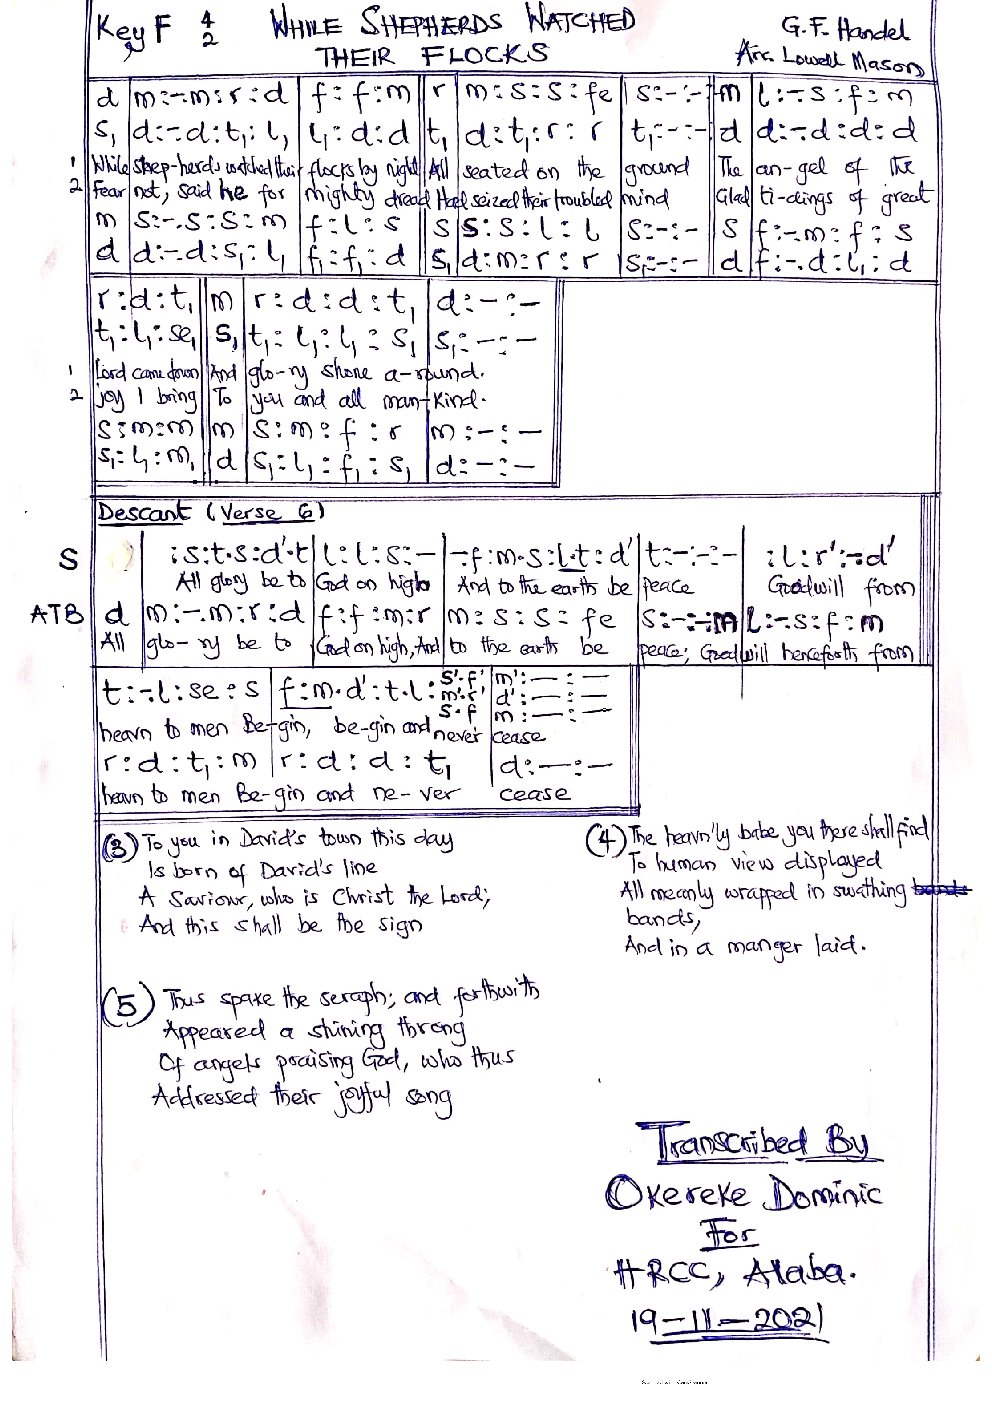 Key F 4/2 WHILE SHEPHERDS WATCHED G.F. Handel
THEIR FLOCKS Arr. Lowell Mason
d | m:-.m:r:d | f:f:m | r | m:s:s:fe | s:-:- | m | l:-.s:f:m
s₁ | d:-.d:t₁:l₁ | l₁:d:d | t₁ | d:t₁:r:r | t₁:-:- | d | d:-.d:d:d
1 While shep-herds watched their flocks by night All seated on the ground The an-gel of the
2 Fear not, said he for mighty dread Had seized their troubled mind Glad ti-dings of great
m | s:-.s:s:m | f:l:s | s | s:s:l:l | s:-:- | s | f:-.m:f:s
d | d:-.d:s₁:l₁ | f₁:f₁:d | s₁ | d:m:r:r | s₁:-:- | d | f:-.d:l₁:d
r:d:t₁ | m | r:d:d:t₁ | d:-:-
t₁:l₁:se₁ | s₁ | t₁:l₁:l₁:s₁ | s₁:-:-
1 Lord came down And glo-ry shone a-round.
2 joy I bring To you and all man-kind.
s:m:m | m | s:m:f:r | m:-:-
s₁:l₁:m₁ | d | s₁:l₁:f₁:s₁ | d:-:-
Descant (Verse 6)
S :s:t.s:d'.t | l:l:s:- | -:f:m.s:l.t:d' | t:-:-:- | :l:r':-.d'
All glory be to God on high And to the earth be peace Goodwill from
ATB d | m:-.m:r:d | f:f:m:r | m:s:s:fe | s:-:-:m | l:-.s:f:m
All glo-ry be to God on high, And to the earth be peace; Goodwill henceforth from
s'.f'
t:-.l:se:s | f:m.d':t.l: m'.r' | m':-:-
d':-:-
s.f m:-:-
heavn to men Be-gin, be-gin and never cease
r:d:t₁:m | r:d:d:t₁ | d:-:-
heavn to men Be-gin and ne-ver cease
(3) To you in David's town this day
Is born of David's line
A Saviour, who is Christ the Lord;
And this shall be the sign
(4) The heavn'ly babe you there shall find
To human view displayed
All meanly wrapped in swathing
bands,
And in a manger laid.
(5) Thus spake the seraph; and forthwith
Appeared a shining throng
Of angels praising God, who thus
Addressed their joyful song
Transcribed By
Okereke Dominic
For
HRCC, Alaba.
19-11-2021